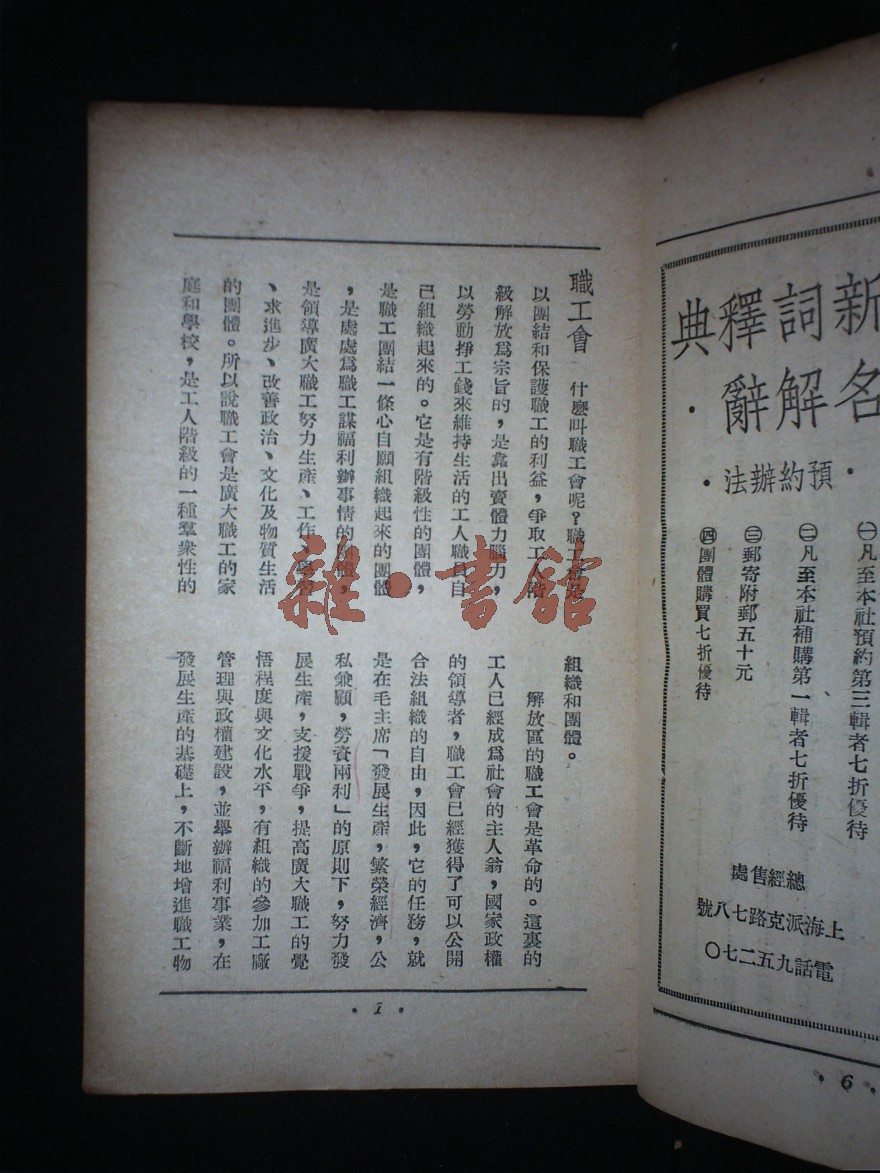 職工會 什麼叫職工會呢？職工會是
以團結和保護職工的利益，爭取工人階
級解放爲宗旨的，是靠出賣體力腦力，
以勞動掙工錢來維持生活的工人職員自
己組織起來的。它是有階級性的團體，
是職工團結一條心自願組織起來的團體
，是處處爲職工謀福利辦事情的團體，
是領導廣大職工努力生產、工作、學習
、求進步、改善政治、文化及物質生活
的團體。所以說職工會是廣大職工的家
庭和學校，是工人階級的一種羣衆性的
組織和團體。
解放區的職工會是革命的。這裏的
工人已經成爲社會的主人翁，國家政權
的領導者，職工會已經獲得了可以公開
合法組織的自由，因此，它的任務，就
是在毛主席「發展生產，繁榮經濟，公
私兼顧，勞資兩利」的原則下，努力發
展生產，支援戰爭，提高廣大職工的覺
悟程度與文化水平，有組織的參加工廠
管理與政權建設，並舉辦福利事業，在
發展生產的基礎上，不斷地增進職工物
•1•
新詞釋典
名解辭•
•預約辦法•
㊀凡至本社預約第三輯者七折優待
㊁凡至本社補購第一輯者七折優待
㊂郵寄附郵五十元
㊃團體購買七折優待
總經售處
上海派克路七八號
電話九五二七〇
•6•
雜•書館